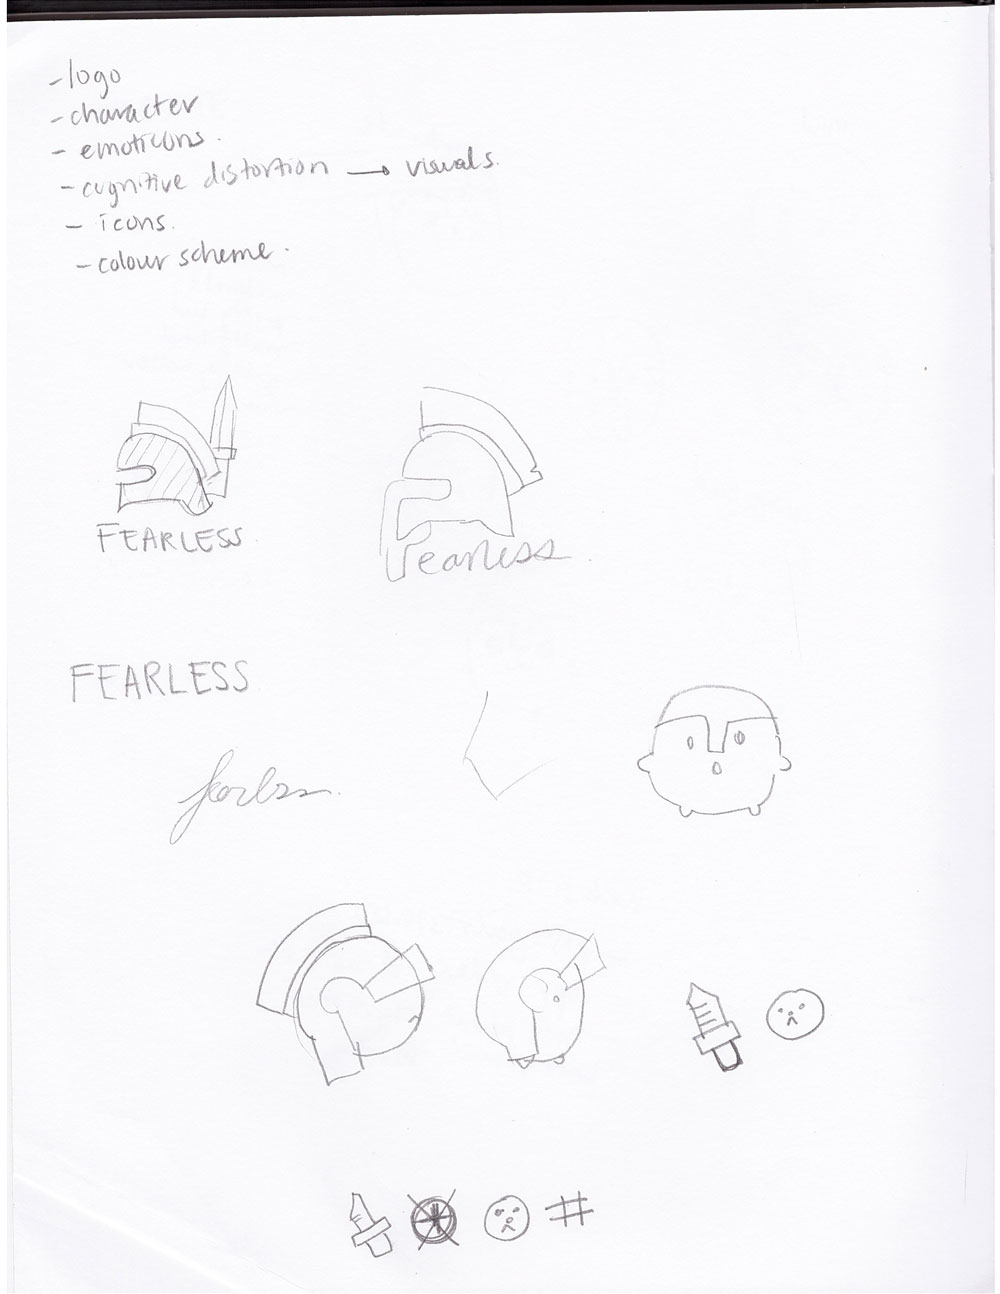 - logo
- character
- emoticons.
- cognitive distortion → visuals.
- icons.
- colour scheme.
FEARLESS
Fearless.
FEARLESS
fearless.
#